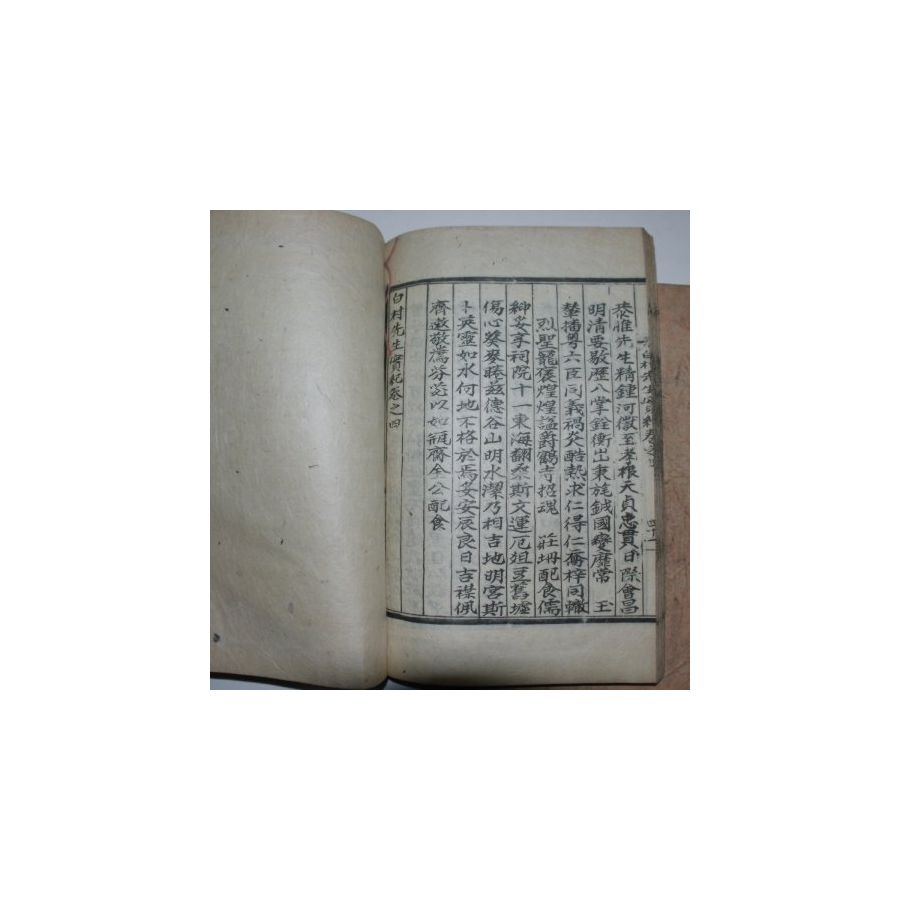 恭惟先生精鍾河徽至孝根天貞忠貫日際會昌
明清要歇歷八掌銓衡出秉旄鉞國變靡常 玉
蟄插粤六臣同義禍炎酷熱求仁得仁喬梓同轍
烈聖寵褒煌煌謚爵鶴寺招魂 莊坍配食儒
紳妥享祠院十一東海翻桑斯文運厄俎豆舊墟
傷心葵麥睠茲德谷山明水潔乃相吉地明宮斯
卜英靈如水何地不格於焉妥安辰良日吉襟佩
齊遬敬薦芬苾以如瓶齋全公配食
白村先生實紀卷之四